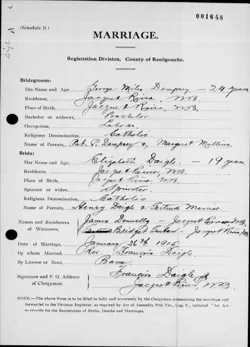 001648
(Schedule B.)
MARRIAGE.
Registration Division. County of Restigouche.
Bridegroom:
His Name and Age, George Miles Dempsey — 24 years
Residence, Jacquet River, N.B.
Place of Birth, Jacquet River, N.B.
Bachelor or widower, Bachelor
Occupation, Laborer
Religious Denomination, Catholic
Name of Parents, Pat. T. Dempsey & Margaret
Bride:
Her Name and Age, Elizabeth Daigle — 19 years
Residence, Jacquet River, N.B.
Place of Birth, Jacquet River N.B.
Spinster or widow, Spinster
Religious Denomination, Catholic
Name of Parents, Henry Daigle & Mercier
Names and Residence of Witnesses, James Donnelly — Jacquet River N.B.
Bridget — Jacquet River N.B.
Date of Marriage, January 26th 1915
By whom Married, Rev. Francis Daigle
By License or Bans, Bans
Signature and P. O. Address of Clergyman, Francis Daigle
Jacquet River, N.B.
NOTE:—The above Form is to be filled in fully and accurately by the Clergyman solemnizing the marriage and forwarded to the Division Registrar, as required by Act of Assembly, Vic., Cap. , intituled "An Act to provide for the Registration of Births, Deaths and Marriages."